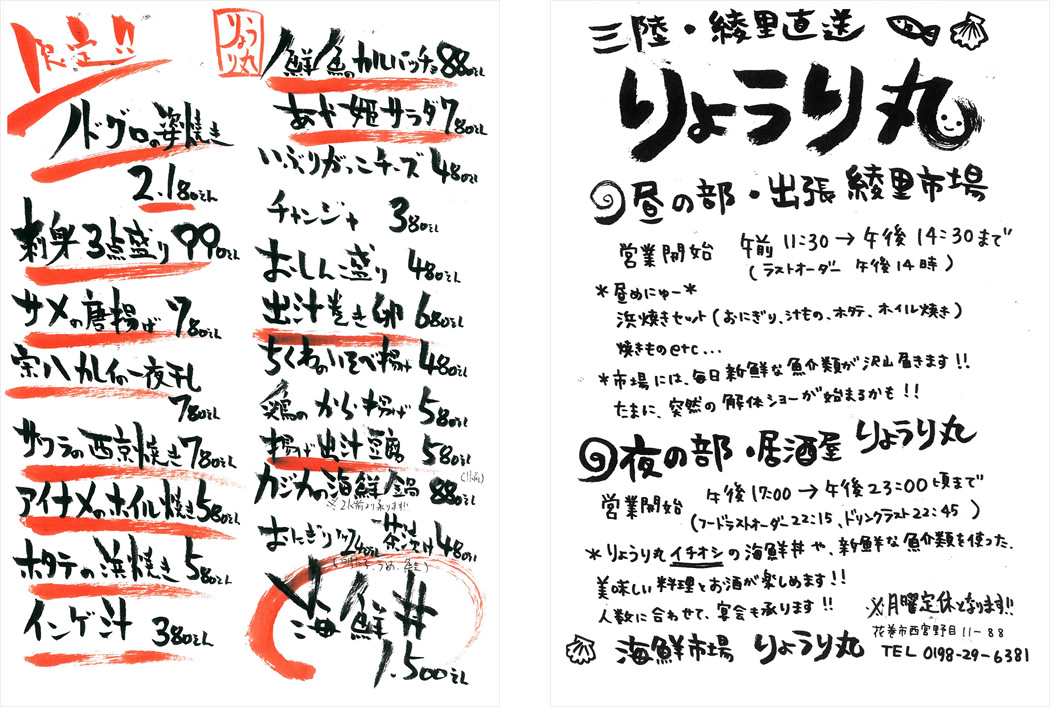 限定!!
ノドグロの姿焼き
2.180えん
刺身3点盛り 990えん
サメの唐揚げ 780えん
宗八カレイの一夜干し
780えん
サワラの西京焼き 780えん
アイナメのホイル焼き 580えん
ホタテの浜焼き 580えん
インゲ汁 380えん
りょうり丸
鮮魚のカルパッチョ 880えん
あや姫サラダ 780えん
いぶりがっこチーズ 480えん
チャンジャ 380えん
おしん盛り 480えん
出汁巻き卵 680えん
ちくわのいそべ揚げ 480えん
鶏のから揚げ 580えん
揚げ出汁豆腐 580えん
カジカの海鮮鍋 880えん
(1人前)
※2人前より承ります!!
おにぎり 240えん 茶漬け 480えん
海鮮丼
1.500えん
三陸・綾里直送
りょうり丸
昼の部・出張 綾里市場
営業開始 午前 11:30→午後 14:30まで
(ラストオーダー 午後14時)
*昼めにゅー*
浜焼きセット(おにぎり、汁もの、ホタテ、ホイル焼き)
焼きものetc...
*市場には、毎日新鮮な魚介類が沢山届きます!!
たまに、突然の解体ショーが始まるかも!!
夜の部・居酒屋 りょうり丸
営業開始 午後17:00→午後23:00頃まで
(フードラストオーダー22:15、ドリンクラスト22:45)
*りょうり丸イチオシの海鮮丼や、新鮮な魚介類を使った、
美味しい料理とお酒が楽しめます!!
人数に合わせて、宴会も承ります!!
※月曜定休となります!!
花巻市西宮野目11-88
海鮮市場 りょうり丸 TEL 0198-29-6381